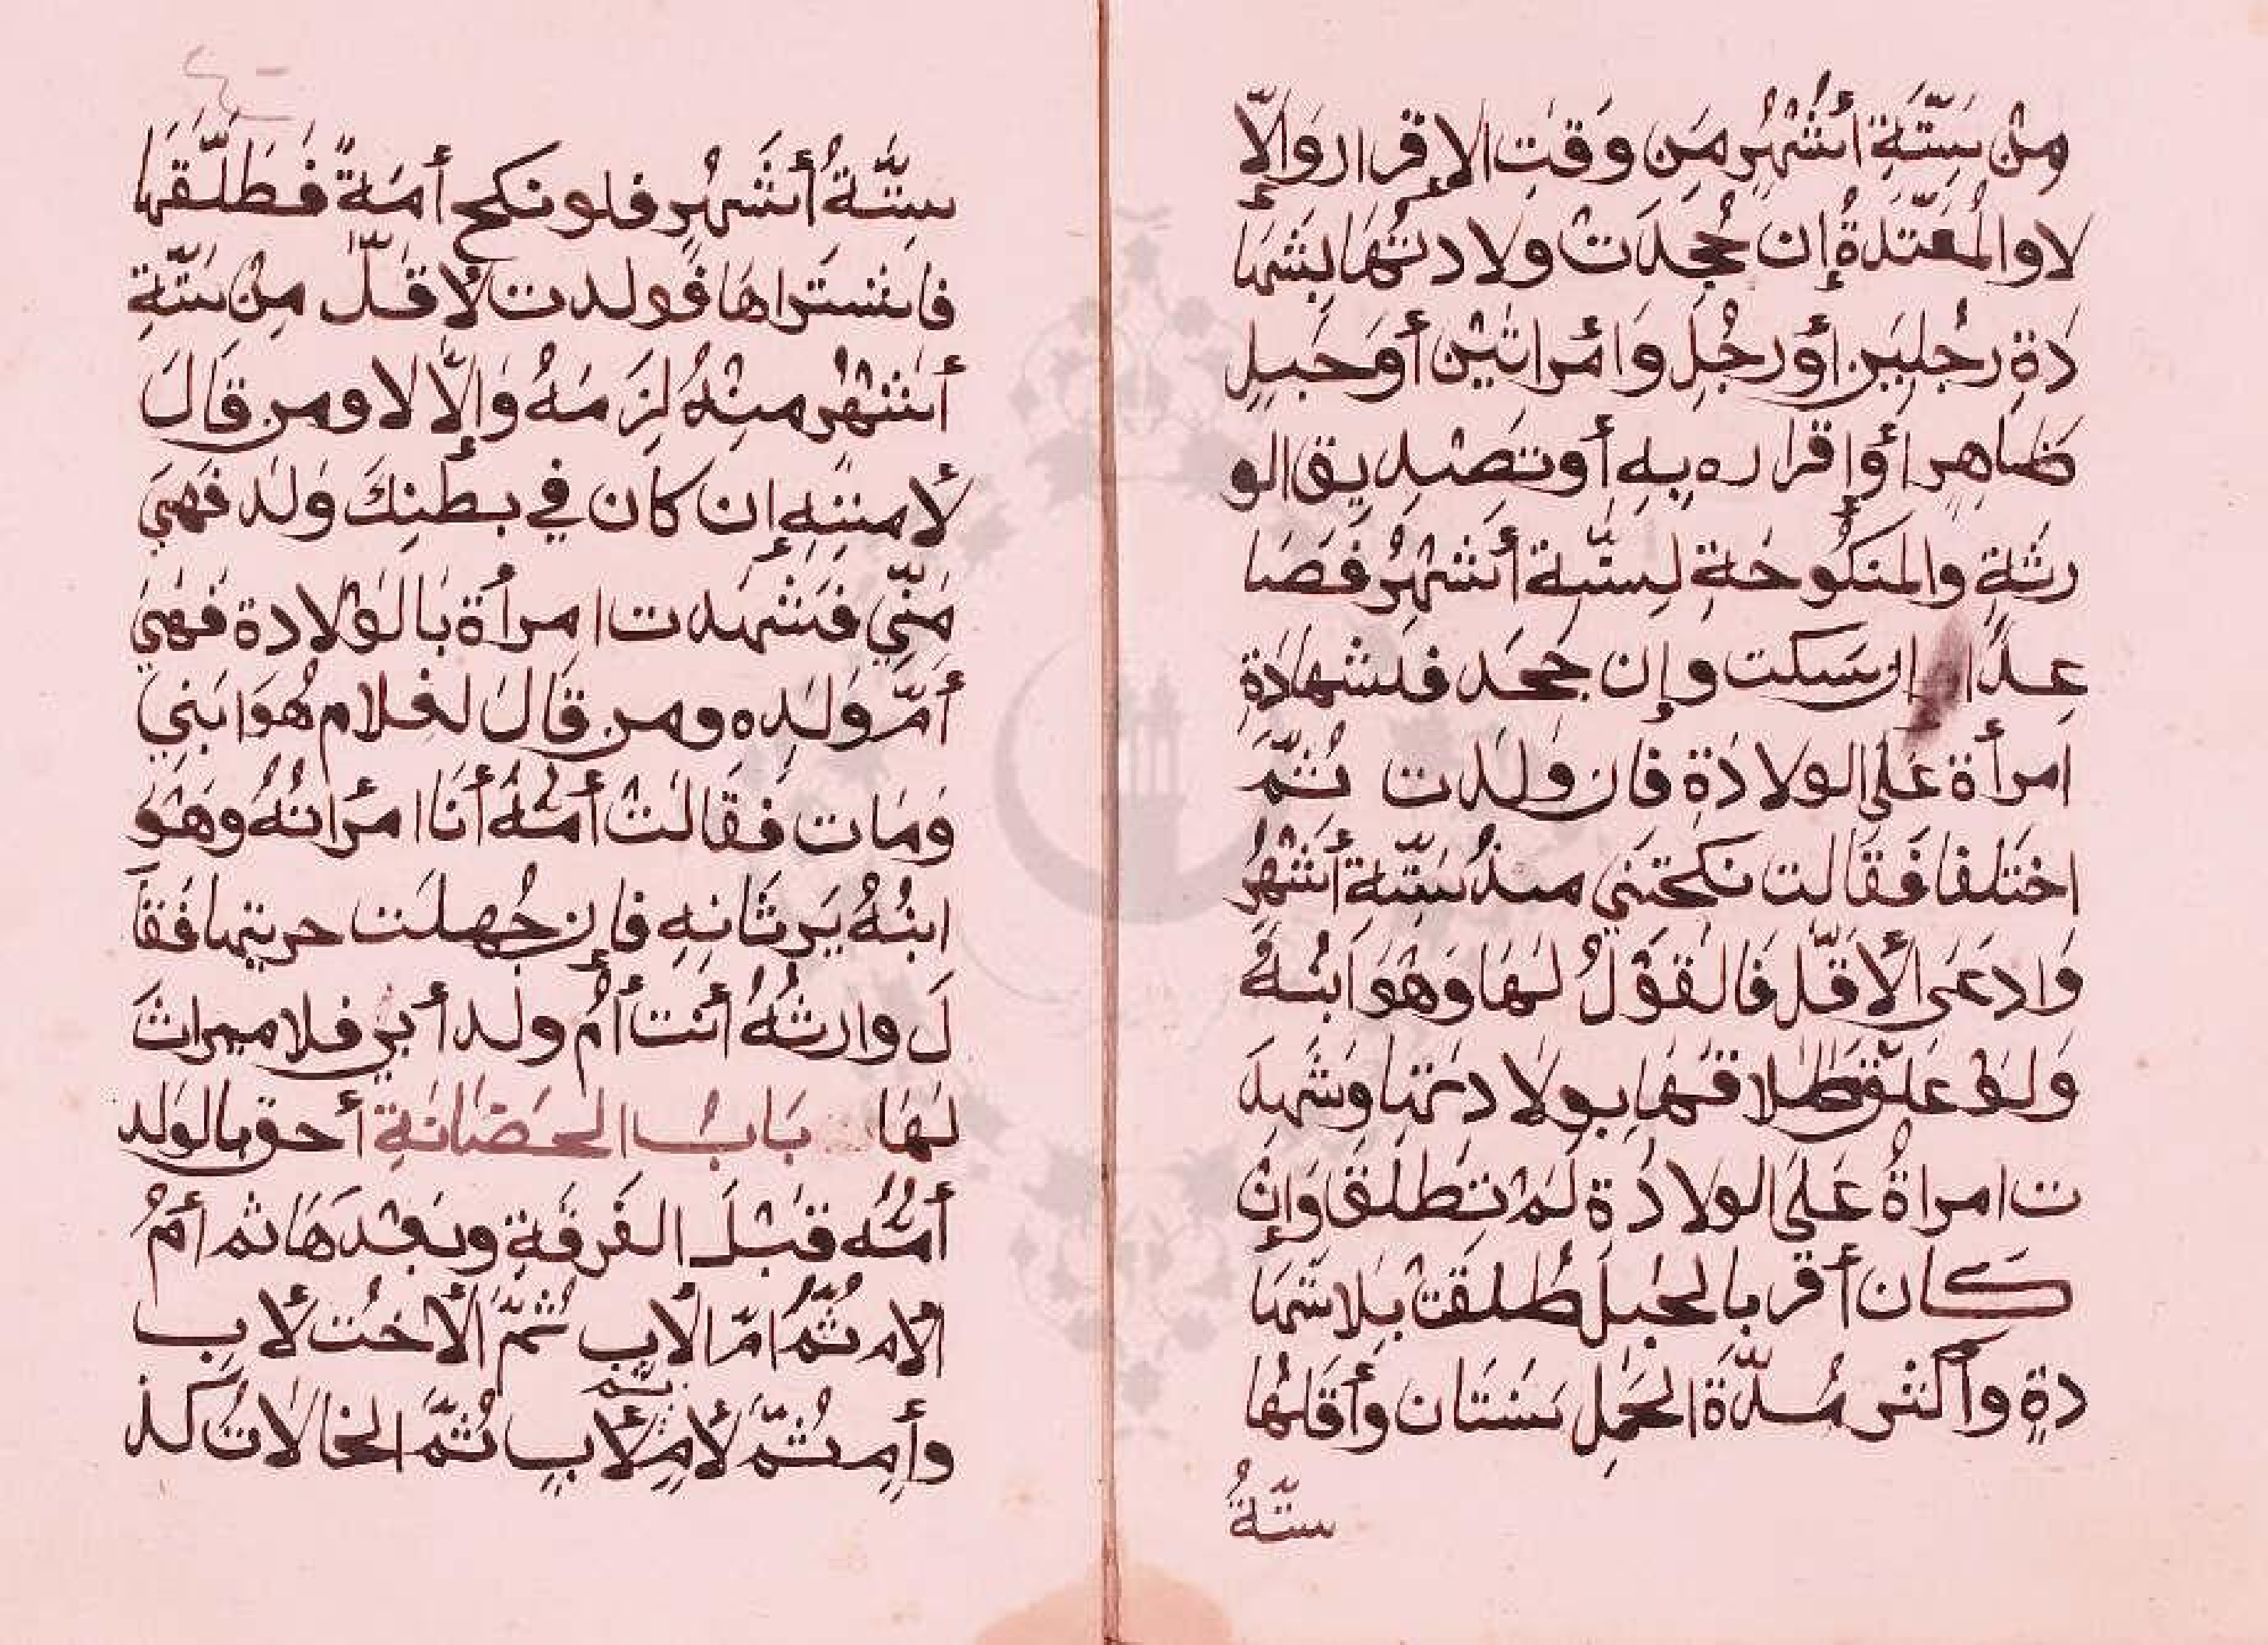 مِنْ سِتَّةِ أَشْهُرٍ مَن وَقتِ الإقرار وَإلّا
لا والمُعْتَدّةُ إن جُحِدَتْ ولادتُهَا بِشَهَا
دَةِ رجُلين أو رجُلٍ وَامْراتَيْن أَوْحَبلٍ
ظَاهِرٍ أَوْ إقراره بِهِ أو تَصْدِيق الو
رثَةِ والمنكُوحَةِ لِستّةِ أشهُرٍ فَصَا
عِدًا إن سَكت وإن جحَد فلشهادَةِ
امرأة عَلى الولادَةِ فان ولدت ثُمّ
اختَلفا فَقَالت نكحتَني منذُ ستّةِ أشْهُرٍ
وَادعَى الأَقلّ فَالقَوْلُ لهَا وَهْوَ ابنُهُ
وَلَوْ عَلّقَ طلاقَهَا بولادتها وشَهِدَ
ت امراةٌ عَلَى الولادَة لَمْ تَطلُقْ وَإنْ
كان أقر بالحبَل طُلقَتْ بِلا شَهَا
دةٍ وأكثر مُدّةَ الحَمْلِ سَنَتَان وأَقَلهُا
ستّةُ
ستَّةُ أَشهُرٍ فلو نكح أَمَةً فَطَلَّقَهَا
فاشتراها فَولدت لأقلّ مِنْ ستّةِ
أشْهُرٍ مِنْهُ لَزِمَهُ وَإلّا لا ومن قَالَ
لأمتِهِ إن كَان في بطنِكَ وَلَد فَهيَ
مِنّي فَشهدت امرأة بِالوْلادة فَهْيَ
أمّ وَلَدِه ومن قَالَ لغلام هُوَ ابْنِي
وَمَات فَقَالَتْ أُمُّهُ أنَا امْرَاتُهُ وَهْوَ
ابنُهُ يَرثَانِهِ فإن جُهلَت حريتها فَقَا
لَ وارثُهُ أنْت أمُ ولد أبي فلا ميراثَ
لهَا بَابُ الحَضَانَةِ أحق بالوَلد
أمُّهُ قَبْلَ الفَرقَةِ وبَعْدَهَا ثم أمُ
الأم ثُمّ امّ الأب ثُمّ الأخت لأبٍ
وأمٍ ثُمّ لأمٍ ثم لأبٍ ثُمّ الخالاتُ كذ